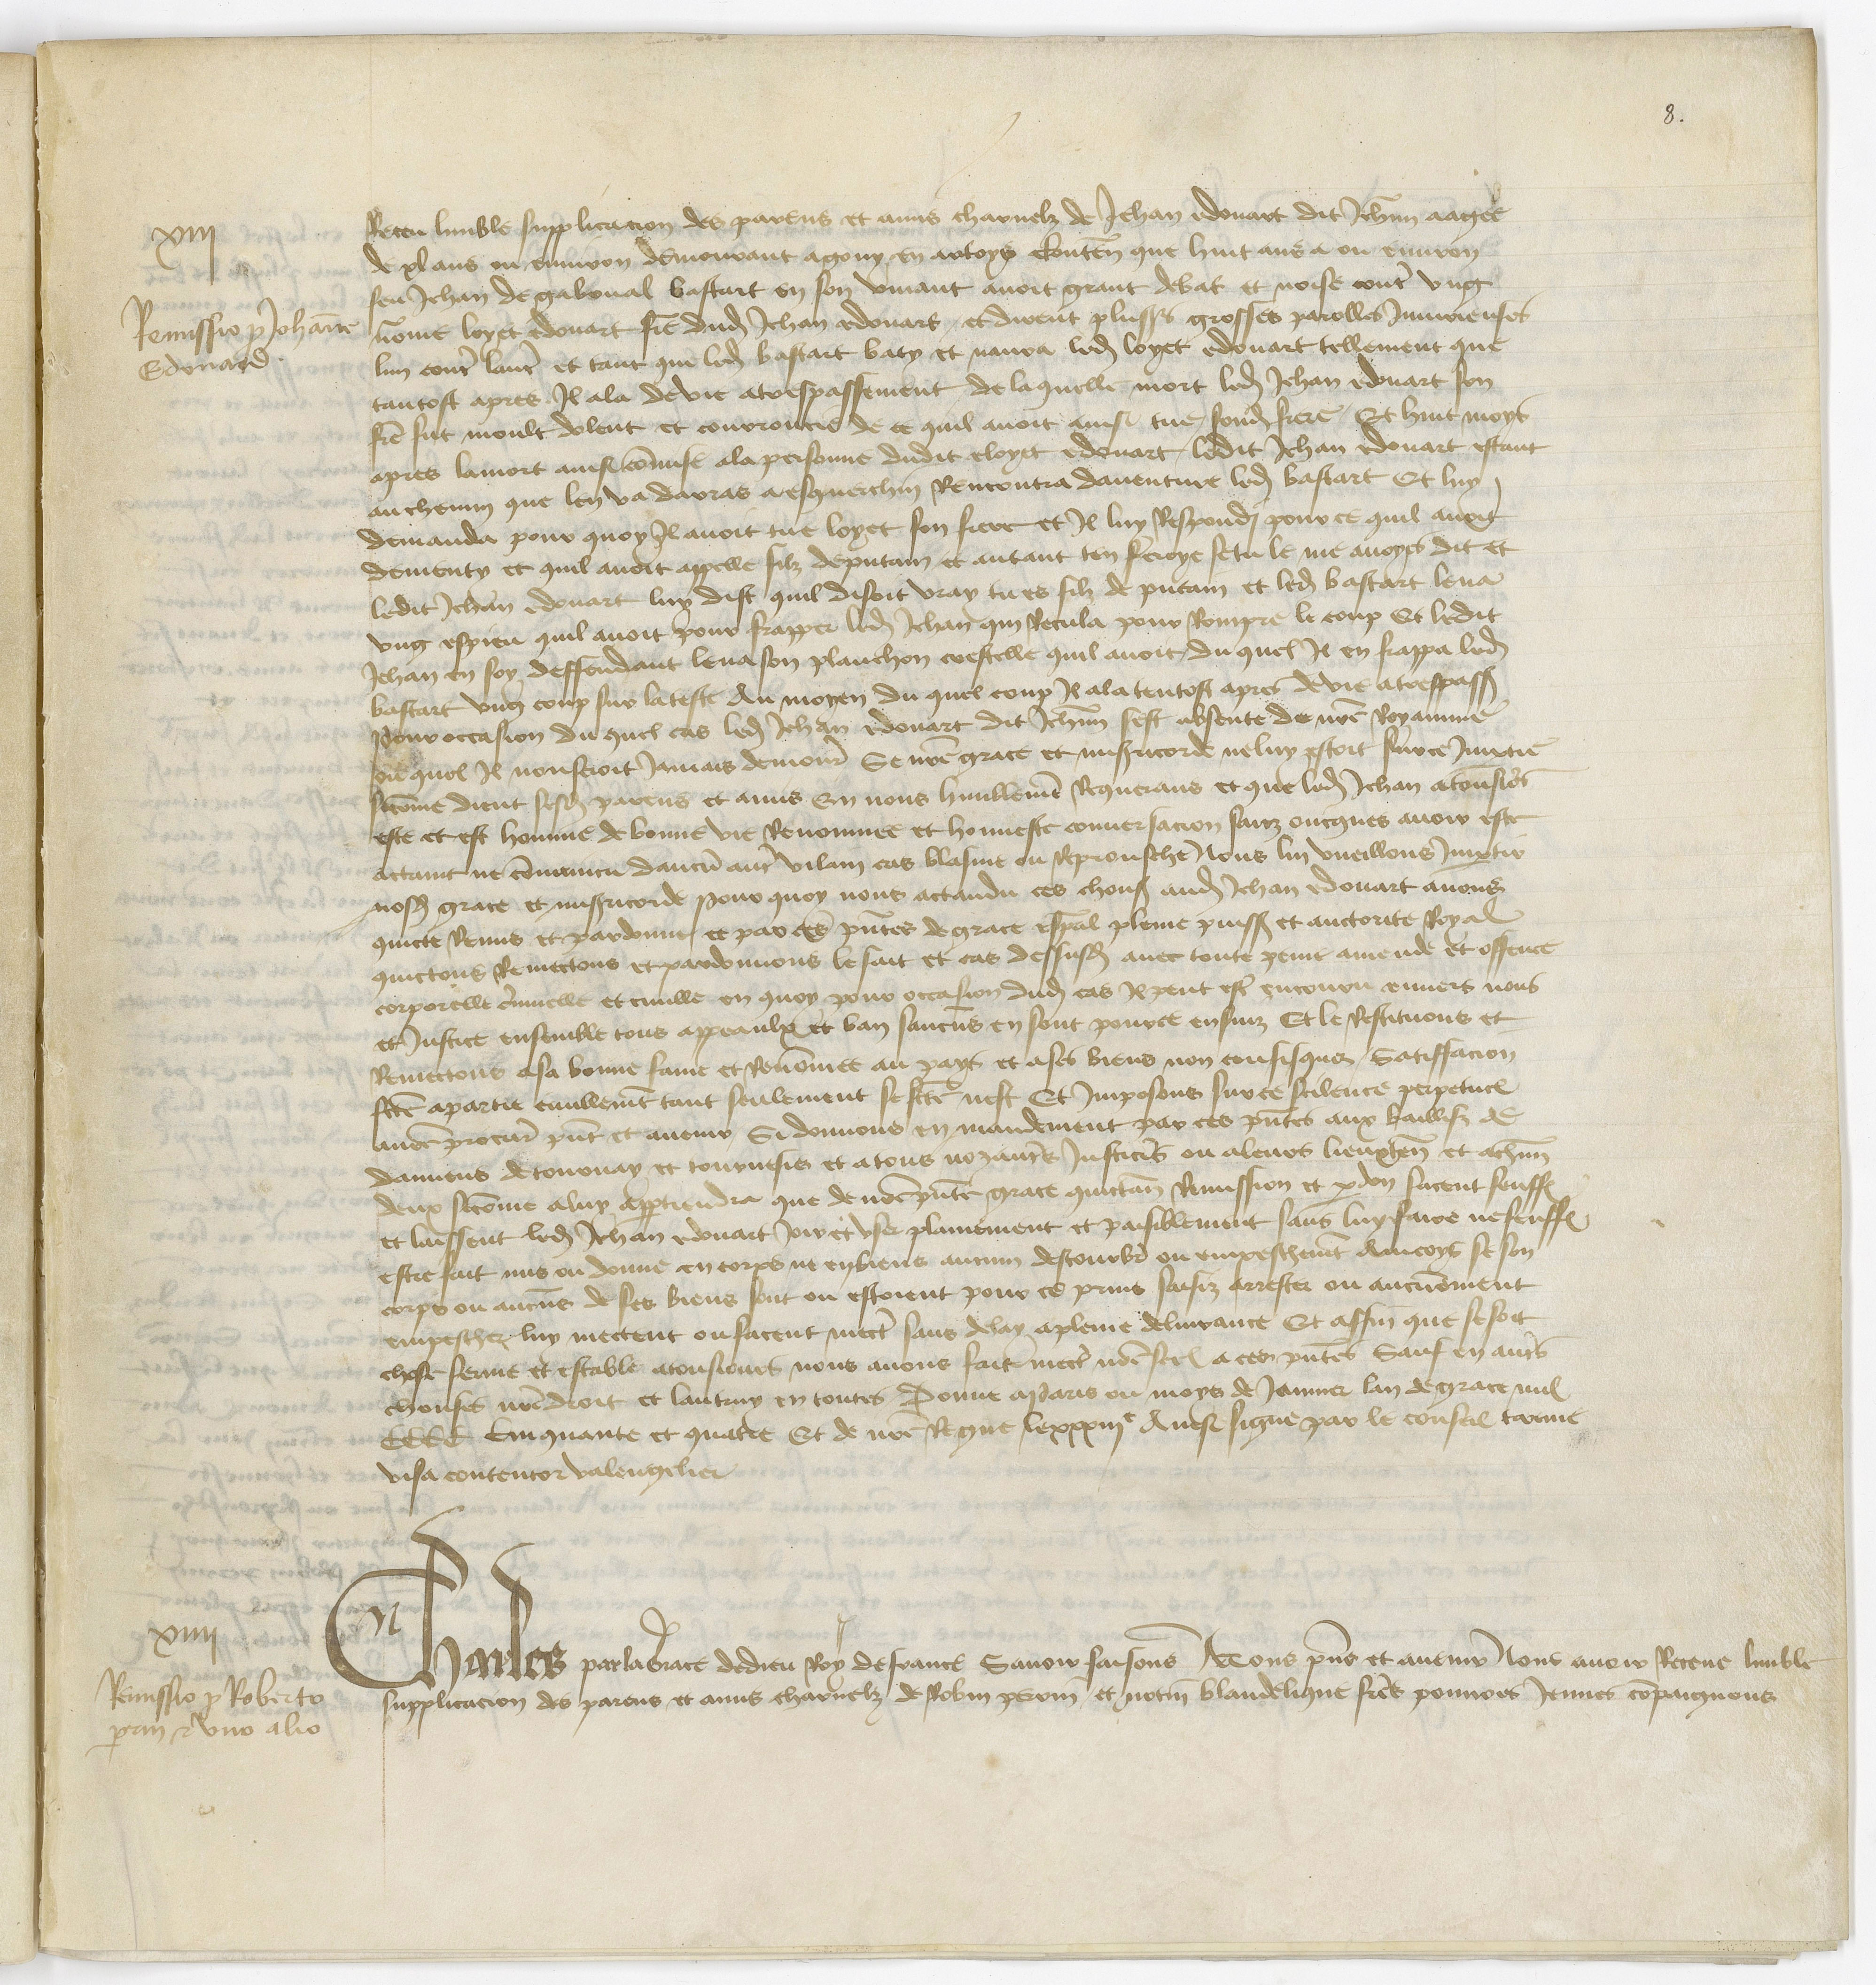 8.
XIII
Remissio p Johanne
Edouard
Receu lumble supplicacion des parens et amis charnelz de Jehan edouart dit Jehnin aagee
de xl ans ou environ demourant a gouy en artoys Contenant que huit ans a ou environ
feu Jehan de gabeual bastart en son vivant avoit grant debat et noise contre ung
nomme loyet edouart frere dudit Jehan edouart et dirent pluss grosses parolles Injurieuses
lun contre lautre et tant que ledit bastart baty et navra ledit loyet edouart tellement que
tantost apres Il ala de vie a trespassement de laquelle mort ledit Jehan edouart son
frere fut moult dolent et courroucie de ce quil avoit ainsi tue sondit frere Et huit moys
apres la mort ainsi commise a la personne dudit eloyet edouart ledit Jehan edouart estant
au chemin que len va darras a esquerchin Rencontra daventure ledit bastart Et luy
demanda pour quoy Il avoit tue loyet son frere et Il luy Respondi pour ce quil avoit
dementy et quil avoit appelle filz de putain et autant ten feroye se tu le me avoyes dit et
ledit Jehan edouart luy dist quil disoit vray tu es filz de putain et ledit bastart leva
ung espieu quil avoit pour frapper ledit Jehan qui Recula pour Rompre le coup Et ledit
Jehan en soy deffendant leva son planchon crestelle quil avoit du quel Il en frappa ledit
bastart ung coup sur la teste Au moyen du quel coup Il ala tentost apres de vie a trespass
Pour occasion du quel cas ledit Jehan edouart dit Jehnin sest absente de nostre Royaume
ou quel Il noseroit Jamais demourer Se nostre grace et misericorde ne luy estoit sur ce Impartie
sicomme dient sesdits parens et amis En nous humblement Requerans et que ledit Jehan a tousiours
este et est homme de bonne vie Renommee et honneste conversacion sans oncques avoir este
actaint ne convaincu daucun autre vilain cas blasme ou Reprouche Nous lui vueillons Impartir
nosdits grace et misericorde Pour quoy nous actandu ces chouses audit Jehan edouart avons
quicte Remis et pardonne et par ces presentes de grace especial pleine puissance et auctorite Royal
quictons Remectons et pardonnons le fait et cas dessusdit avec toute peine amende et offence
corporelle criminelle et civille en quoy pour occasion dudit cas Il peut estre encouru envers nous
et Justice ensemble tous appeaulx et ban saucuns en sont pour ce ensuiz Et le Restituons et
Remectons a sa bonne fame et Renommee au pays et a ses biens non confisquez Satiffacion
faicte a partie civillement tant seulement se faicte nest Et Imposons sur ce scilence perpetuel
a nostre procureur present et avenir Si donnons en mandement par ces presentes aux baillifz de
damiens de tournay et tournesis et a tous noz autres Justiciers ou a leurs lieuxtenans et a chacun
deulx sicomme a luy appertiendra que de nostre presente grace quictance Remission et pardon facent seuffrent
et laissent ledit Jehan edouart Joir et user plainement et paisiblement sans luy faire ne seuffrir
estre fait mis ou donne en corps ne en biens aucun destourbier ou empeschement Aincoys se son
corps ou aucuns de ses biens sont ou estoient pour ce prins saisiz arrestez ou aucunement
empeschez luy mectent ou facent mectre sans delay a pleine delivrance Et affin que se soit
chose ferme et estable a tousiours nous avons fait mectre nostre seel a ces presentes Sauf en autres
chouses nostre droit et lautruy en toutes Donne a Paris ou moys de Janvier lan de grace mil
CCCC Cinquante et quatre Et de nostre Regne le xxxiiie Ainsi signe par le conseil
visa contentor valengelier
XIIII
Remissio p Roberto
perin et uno alio
Charles par la grace de dieu Roy de france Savoir faisons A tous presens et avenir Nous avoir Receue lumble
supplicacion des parens et amis charnelz de Robin perrin et notin blandelique freres pouvres Jeunes compaignons